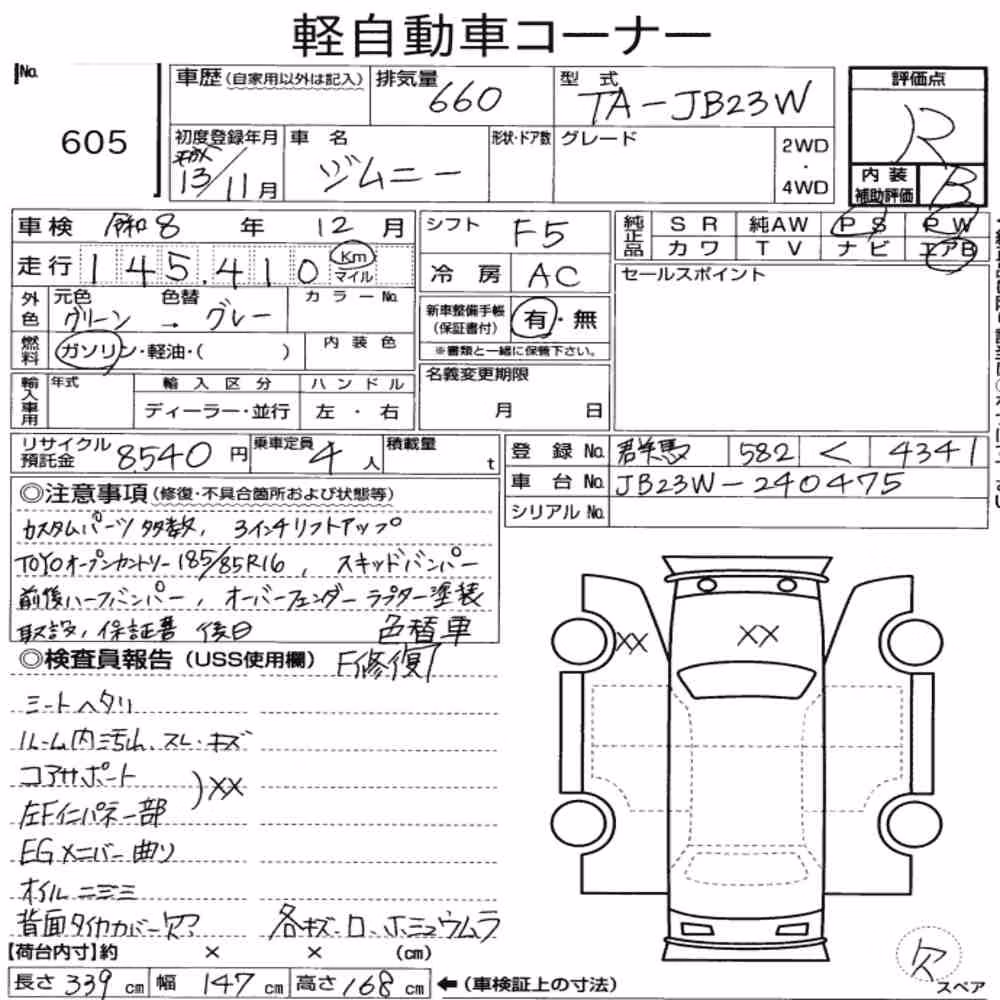 軽自動車コーナー
No.
605
車歴(自家用以外は記入)
排気量
660
型式
TA-JB23W
評価点
R
初度登録年月
平成
13/11月
車名
ジムニー
形状・ドア数
グレード
2WD
・
4WD
内装
補助評価
B
車検 令和8年 12月
走行 145,410 Km
マイル
外色
元色
グリーン
→
色替
グレー
カラーNo.
燃料
ガソリン・軽油・( )
内装色
輸入車用
年式
輸入区分
ディーラー・並行
ハンドル
左・右
シフト
F5
冷房
AC
新車整備手帳
(保証書付)
有・無
※書類と一緒に保管下さい。
名義変更期限
月 日
純正品
SR 純AW PS PW
カワ TV ナビ エアB
セールスポイント
リサイクル
預託金
8540円
乗車定員
4人
積載量
t
登録No. 群馬 582 く 4341
車台No. JB23W-240475
シリアルNo.
◎注意事項(修復・不具合箇所および状態等)
カスタムパーツ多数、3インチリフトアップ
TOYOオープンカントリー185/85R16、スキッドバンパー
前後ハーフバンパー、オーバーフェンダーラプター塗装
取説、保証書 後日
色替車
◎検査員報告(USS使用欄)
F修復
シートヘタリ
ルーム内汚れ、スレ・キズ
コアサポート
左Fインパネ一部
)XX
EGメンバー曲り
オイルニジミ
背面タイヤカバー欠
各キズ・ロ、ホミュウムラ
XX
XX
【荷台内寸】約 × × (cm)
長さ 339cm 幅 147cm 高さ 168cm ←(車検証上の寸法)
欠
スペア